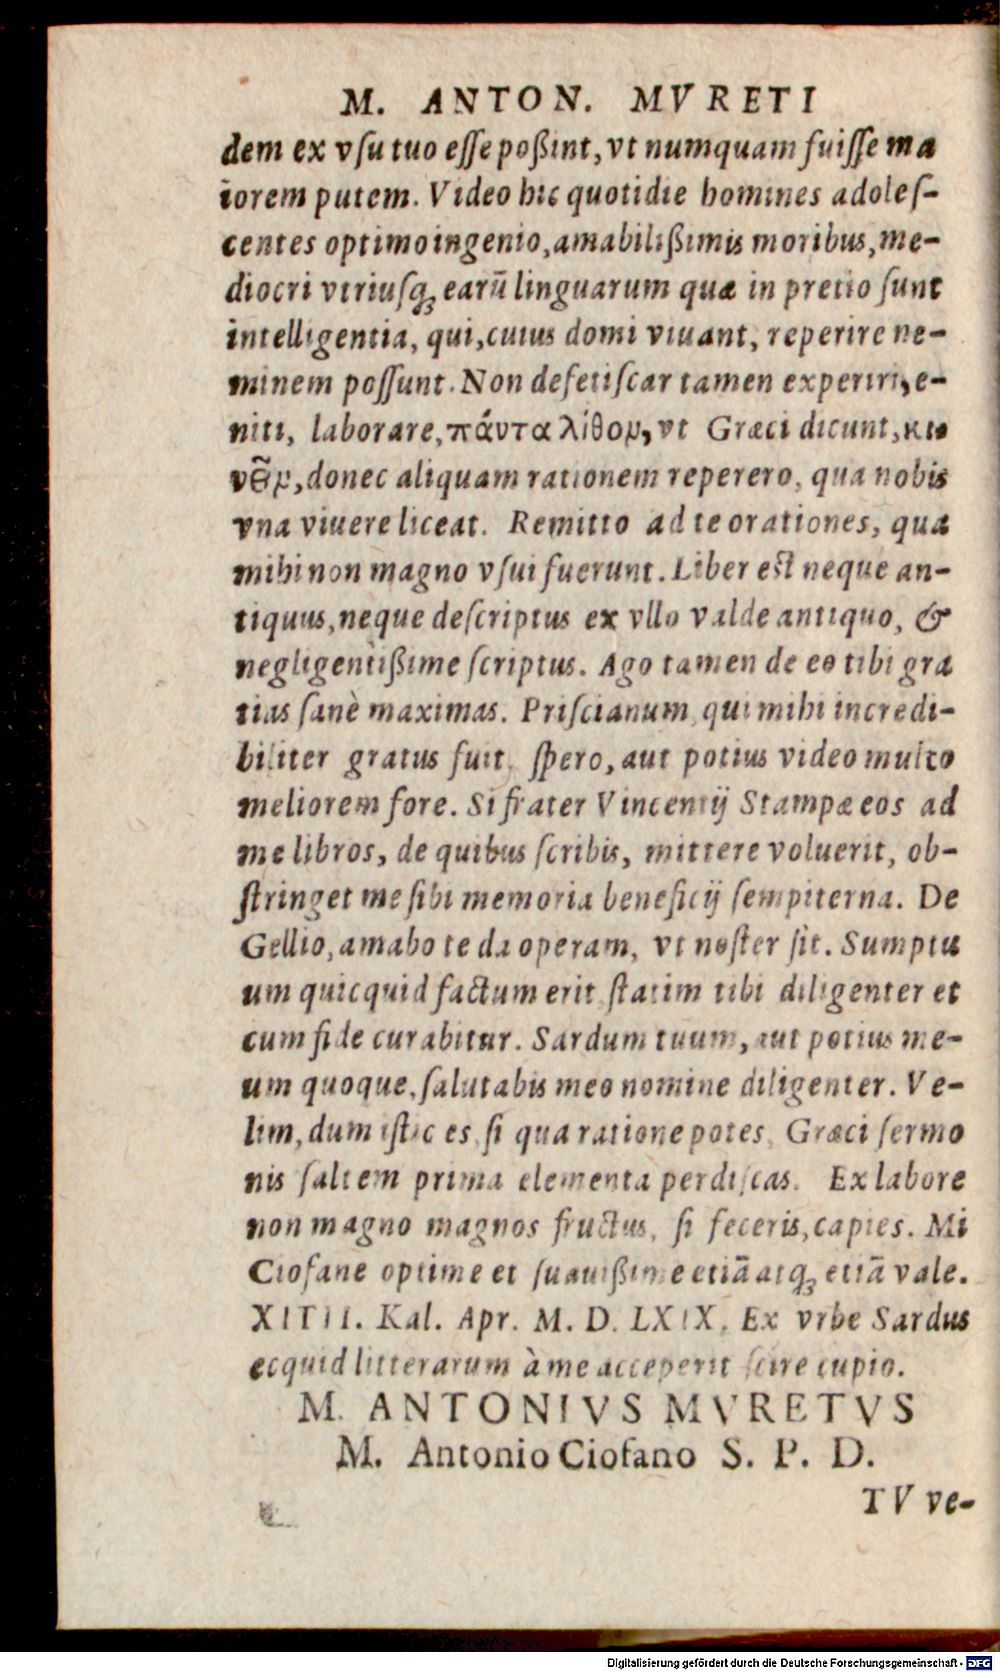 M. ANTON. MVRETI
dem ex vſu tuo eſſe poßint, vt numquam fuiſſe ma
iorem putem. Video hic quotidie homines adoleſ-
centes optimo ingenio, amabilißimis moribus, me-
diocri vtriuſq; earū linguarum quæ in pretio ſunt
intelligentia, qui, cuius domi viuant, reperire ne-
minem poſſunt. Non defetiſcar tamen experiri, e-
niti, laborare, πάντα λίθομ, vt Græci dicunt, κι
νȣ͂μ, donec aliquam rationem reperero, qua nobis
vna viuere liceat. Remitto ad te orationes, quæ
mihi non magno vſui fuerunt. Liber est neque an-
tiquus, neque deſcriptus ex vllo valde antiquo, &
negligentißime ſcriptus. Ago tamen de eo tibi gra
tias ſanè maximas. Priſcianum, qui mihi incredi-
biliter gratus fuit, ſpero, aut potius video multo
meliorem fore. Si frater Vincentij Stampæ eos ad
me libros, de quibus ſcribis, mittere voluerit, ob-
ſtringet me ſibi memoria beneficij ſempiterna. De
Gellio, amabo te da operam, vt noſter ſit. Sumptu
um quicquid factum erit ſtatim tibi diligenter et
cum fide curabitur. Sardum tuum, aut potius me-
um quoque, ſalutabis meo nomine diligenter. Ve-
lim, dum iſtic es, ſi qua ratione potes, Græci ſermo
nis ſaltem prima elementa perdiſcas. Ex labore
non magno magnos fructus, ſi feceris, capies. Mi
Ciofane optime et ſuauißime etiā atq; etiā vale.
XIIII. Kal. Apr. M. D. LXIX. Ex vrbe Sardus
ecquid litterarum à me acceperit ſcire cupio.
M. ANTONIVS MVRETVS
M. Antonio Ciofano S. P. D.
TV ve-
Digitalisierung gefördert durch die Deutsche Forschungsgemeinschaft - DFG